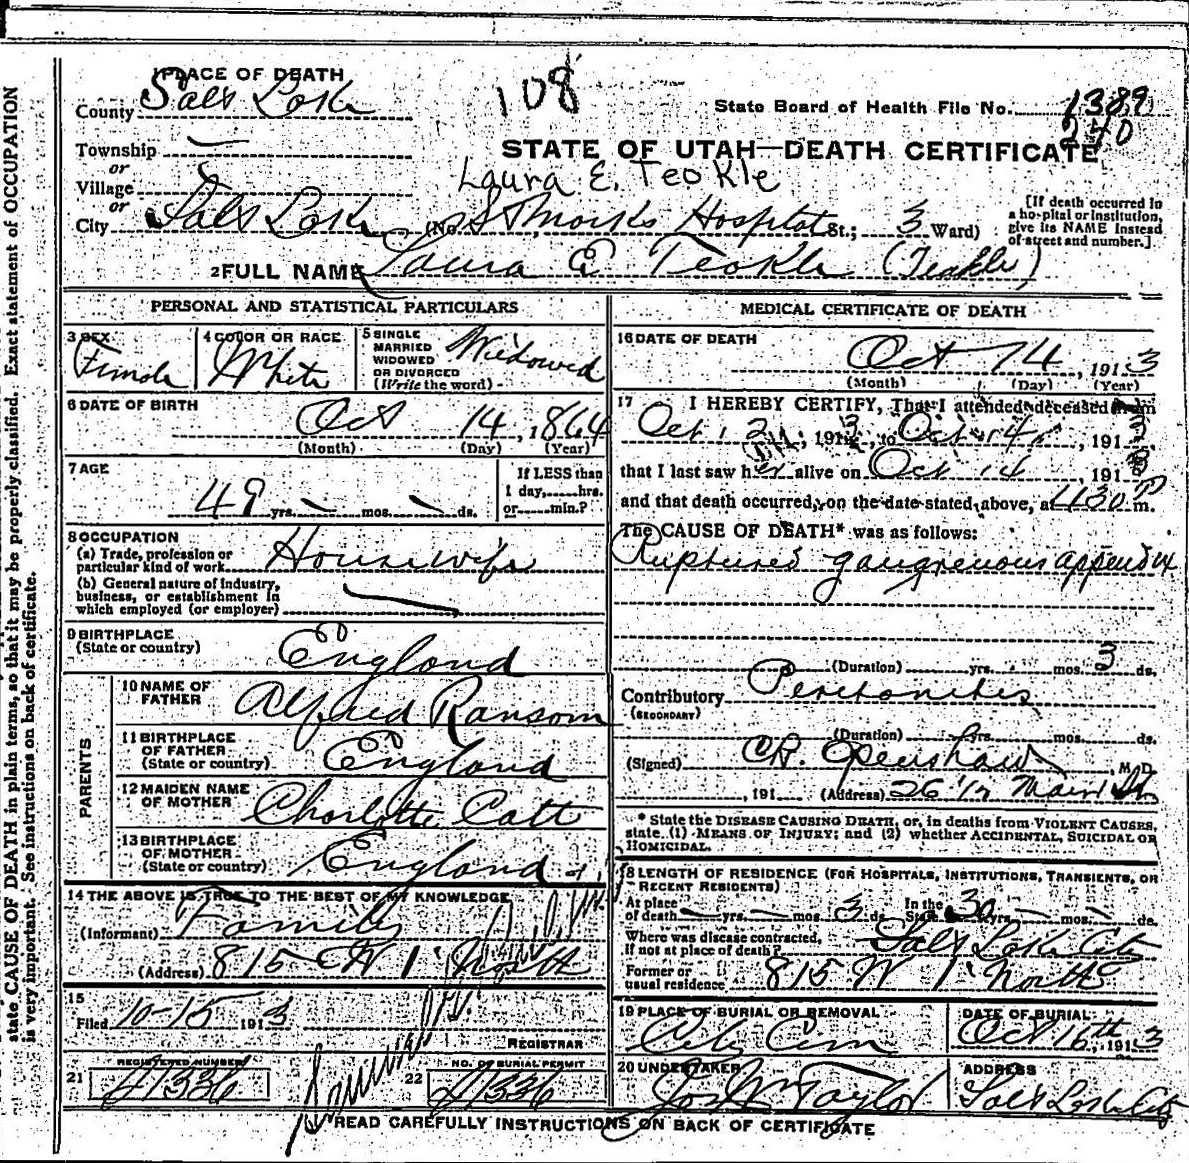 state CAUSE OF DEATH in plain terms, so that it may be properly classified. Exact statement of OCCUPATION
is very important. See instructions on back of certificate.
1 PLACE OF DEATH
108
County Salt Lake
State Board of Health File No. 1389
240
Township
STATE OF UTAH—DEATH CERTIFICATE
or
Village
Laura E. Teokle
or
City Salt Lake (No. St Marks Hospital St.; 3 Ward)
[If death occurred in
a hospital or institution,
give its NAME instead
of street and number.]
2 FULL NAME Laura E Teokle (Teakle)
PERSONAL AND STATISTICAL PARTICULARS
3 SEX Female
4 COLOR OR RACE White
5 SINGLE
MARRIED
WIDOWED
OR DIVORCED
(Write the word)
Widowed
6 DATE OF BIRTH
Oct 14, 1864
(Month) (Day) (Year)
7 AGE
49 yrs. — mos. — ds.
If LESS than
1 day,......hrs.
or......min.?
8 OCCUPATION
(a) Trade, profession or
particular kind of work Housewife
(b) General nature of industry,
business, or establishment in
which employed (or employer)
9 BIRTHPLACE
(State or country) England
PARENTS
10 NAME OF
FATHER Alfred Ransom
11 BIRTHPLACE
OF FATHER
(State or country) England
12 MAIDEN NAME
OF MOTHER Charlotte Catt
13 BIRTHPLACE
OF MOTHER
(State or country) England
14 THE ABOVE IS TRUE TO THE BEST OF MY KNOWLEDGE
(Informant) Family
(Address) 815 W 1 North
15
Filed 10-15 1913
REGISTRAR
REGISTERED NUMBER
21 J1336
NO. OF BURIAL PERMIT
22 J1336
MEDICAL CERTIFICATE OF DEATH
16 DATE OF DEATH
Oct 14, 1913
(Month) (Day) (Year)
17 I HEREBY CERTIFY, That I attended deceased from
Oct 12, 1913, to Oct 14, 1913,
that I last saw her alive on Oct 14 1913
and that death occurred, on the date stated above, at 430 P m.
The CAUSE OF DEATH* was as follows:
Ruptured gangrenous appendix
(Duration) yrs. mos. 3 ds.
Contributory Peretonites
(SECONDARY)
(Duration) yrs. mos. ds.
(Signed) C.R. Openshaw, M.D.
, 191 (Address) 26 1/2 Main St
* State the DISEASE CAUSING DEATH, or, in deaths from VIOLENT CAUSES,
state (1) MEANS OF INJURY; and (2) whether ACCIDENTAL, SUICIDAL OR
HOMICIDAL.
18 LENGTH OF RESIDENCE (FOR HOSPITALS, INSTITUTIONS, TRANSIENTS, OR
RECENT RESIDENTS)
At place
of death — yrs. — mos. 3 ds.
In the
State 30 yrs. — mos. — ds.
Where was disease contracted,
if not at place of death? Salt Lake City
Former or
usual residence 815 W 1 North
19 PLACE OF BURIAL OR REMOVAL
City Cem
DATE OF BURIAL
Oct 16th, 1913
20 UNDERTAKER
Jos Wm Taylor
ADDRESS
Salt Lake City
READ CAREFULLY INSTRUCTIONS ON BACK OF CERTIFICATE